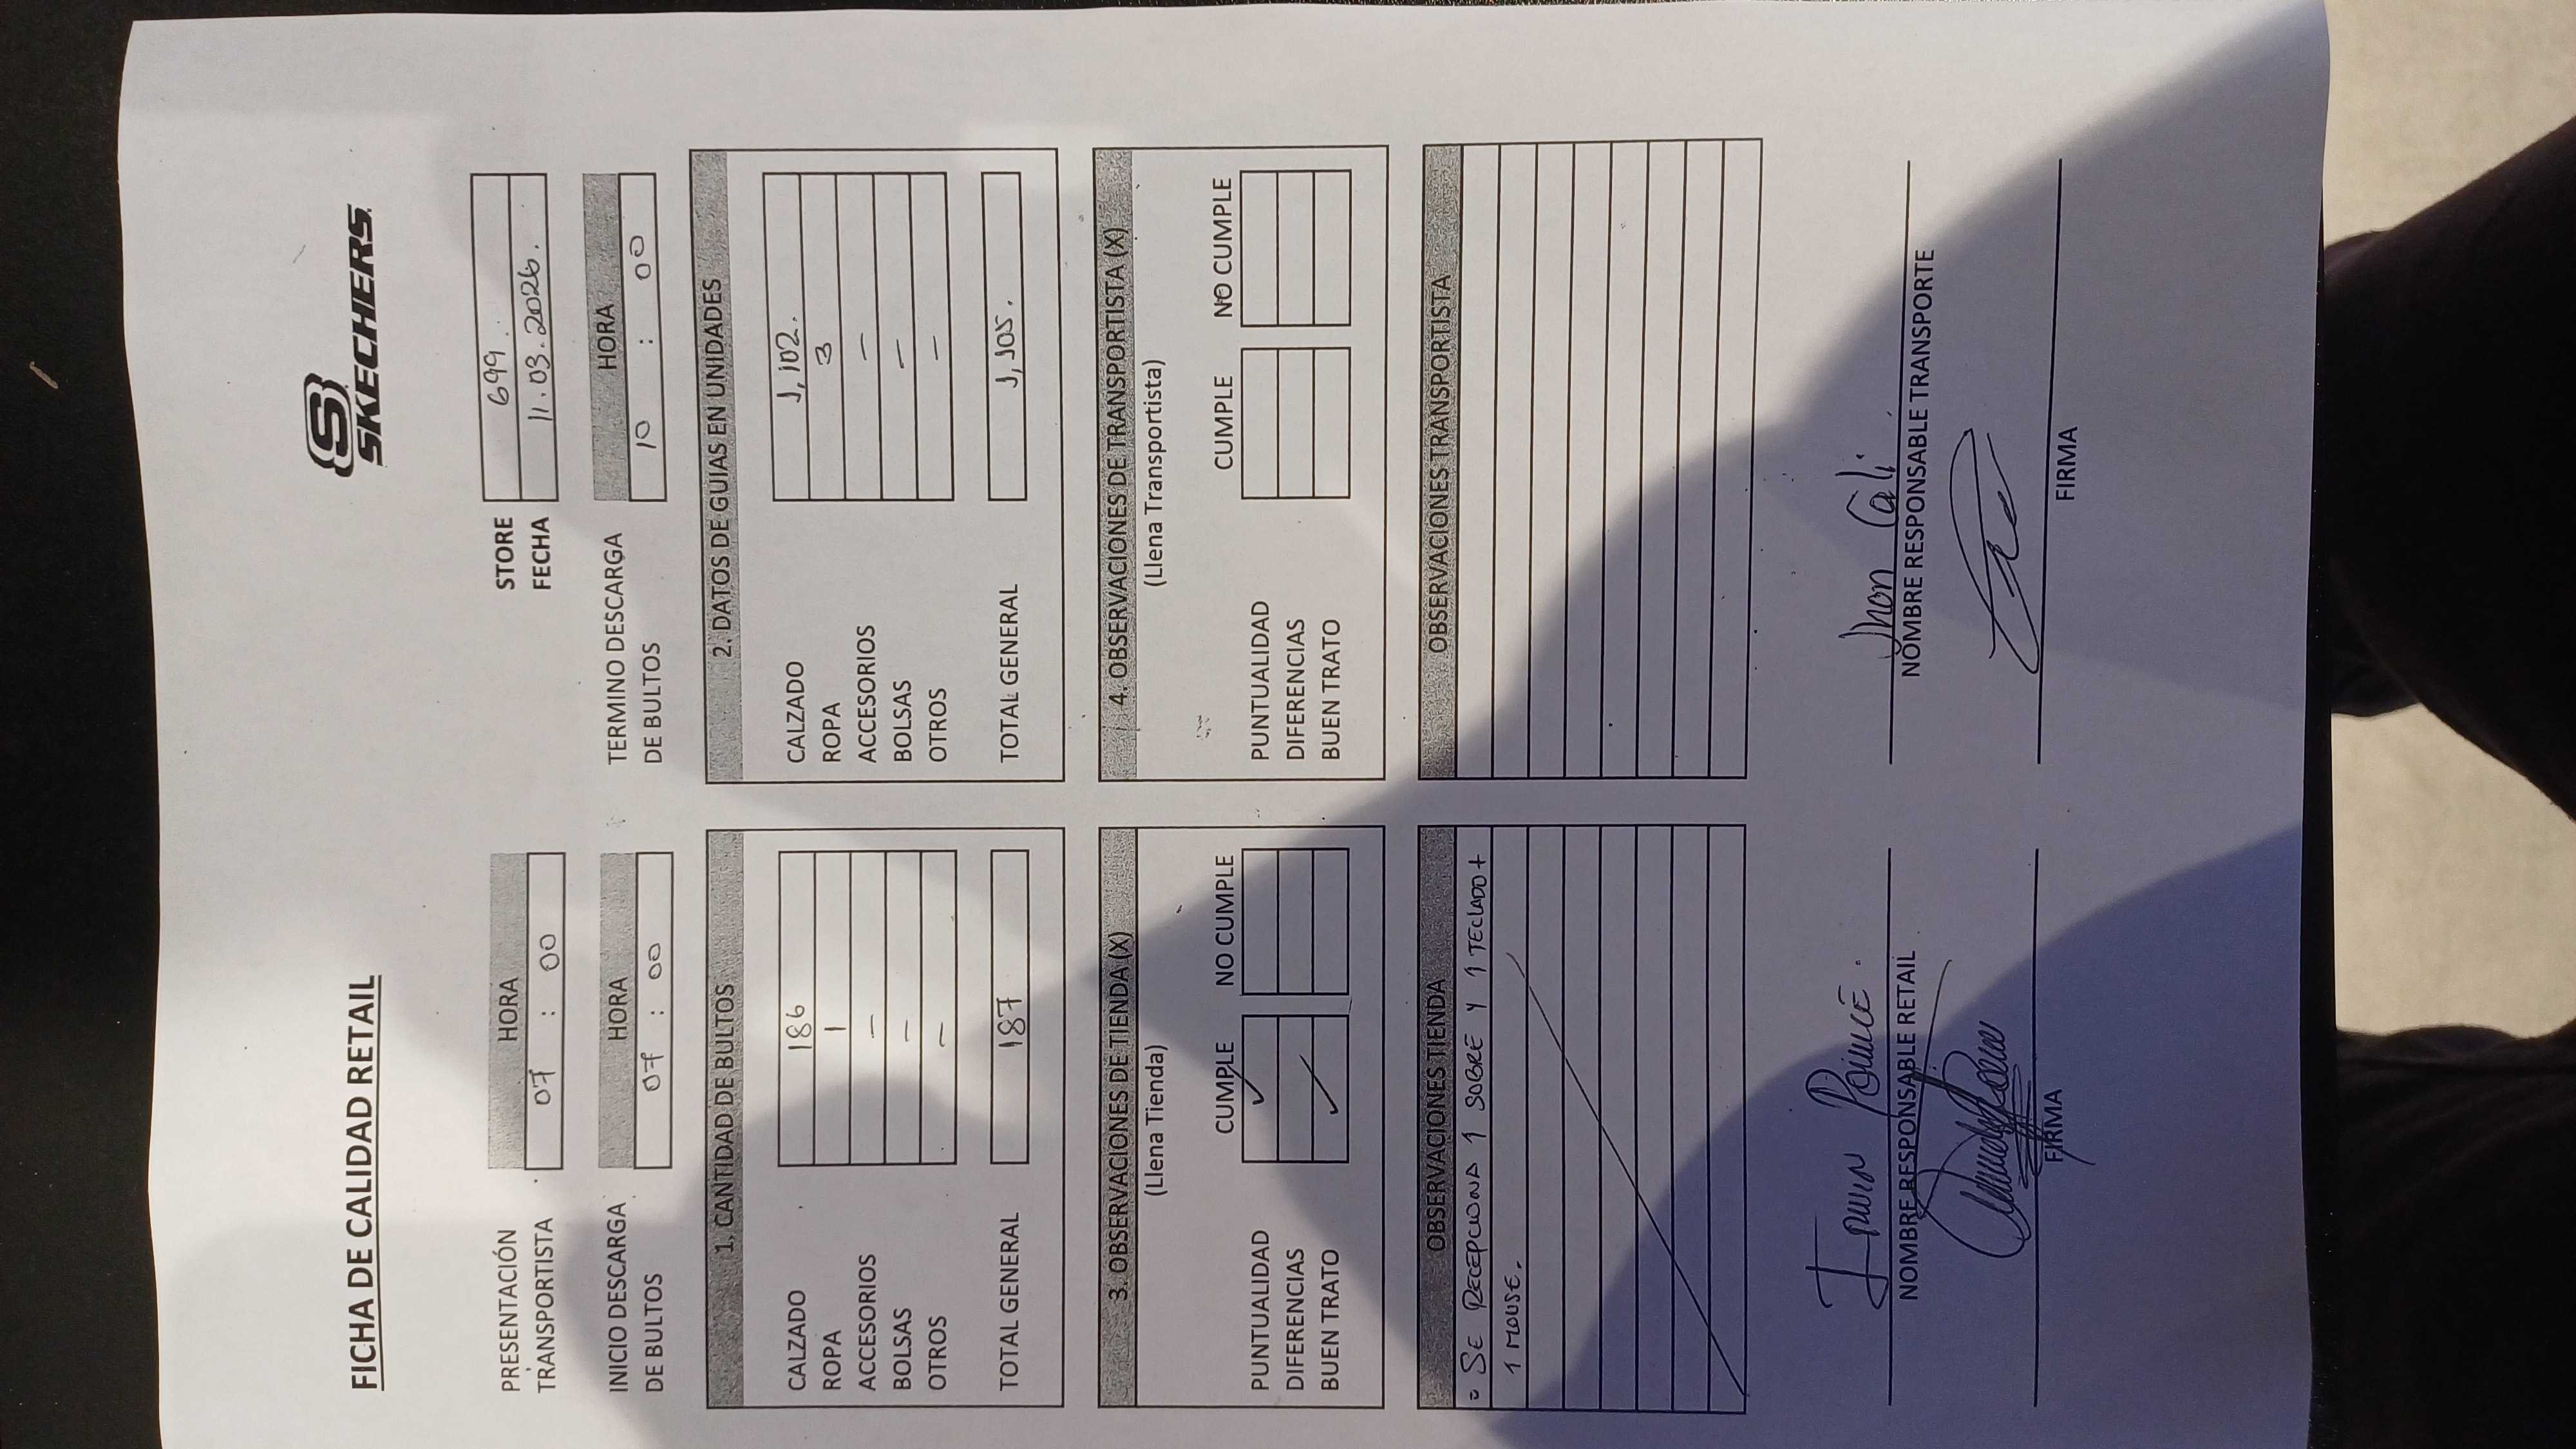 FICHA DE CALIDAD RETAIL
SKECHERS
STORE 699.
FECHA 11.03.2026.
HORA
PRESENTACIÓN
TRANSPORTISTA 07 : 00
HORA
INICIO DESCARGA
DE BULTOS 07 : 00
HORA
TERMINO DESCARGA
DE BULTOS 10 : 00
1. CANTIDAD DE BULTOS
CALZADO 186
ROPA 1
ACCESORIOS –
BOLSAS –
OTROS –
TOTAL GENERAL 187
2. DATOS DE GUIAS EN UNIDADES
CALZADO 1,102.
ROPA 3
ACCESORIOS –
BOLSAS –
OTROS –
TOTAL GENERAL 1,105.
3. OBSERVACIONES DE TIENDA (X)
(Llena Tienda)
CUMPLE NO CUMPLE
PUNTUALIDAD ✓
DIFERENCIAS
BUEN TRATO ✓
4. OBSERVACIONES DE TRANSPORTISTA (X)
(Llena Transportista)
CUMPLE NO CUMPLE
PUNTUALIDAD
DIFERENCIAS
BUEN TRATO
OBSERVACIONES TIENDA
- SE RECEPCIONA 1 SOBRE Y 1 TECLADO +
1 MOUSE.
OBSERVACIONES TRANSPORTISTA
NOMBRE RESPONSABLE RETAIL
FIRMA
Jhon Cali
NOMBRE RESPONSABLE TRANSPORTE
FIRMA